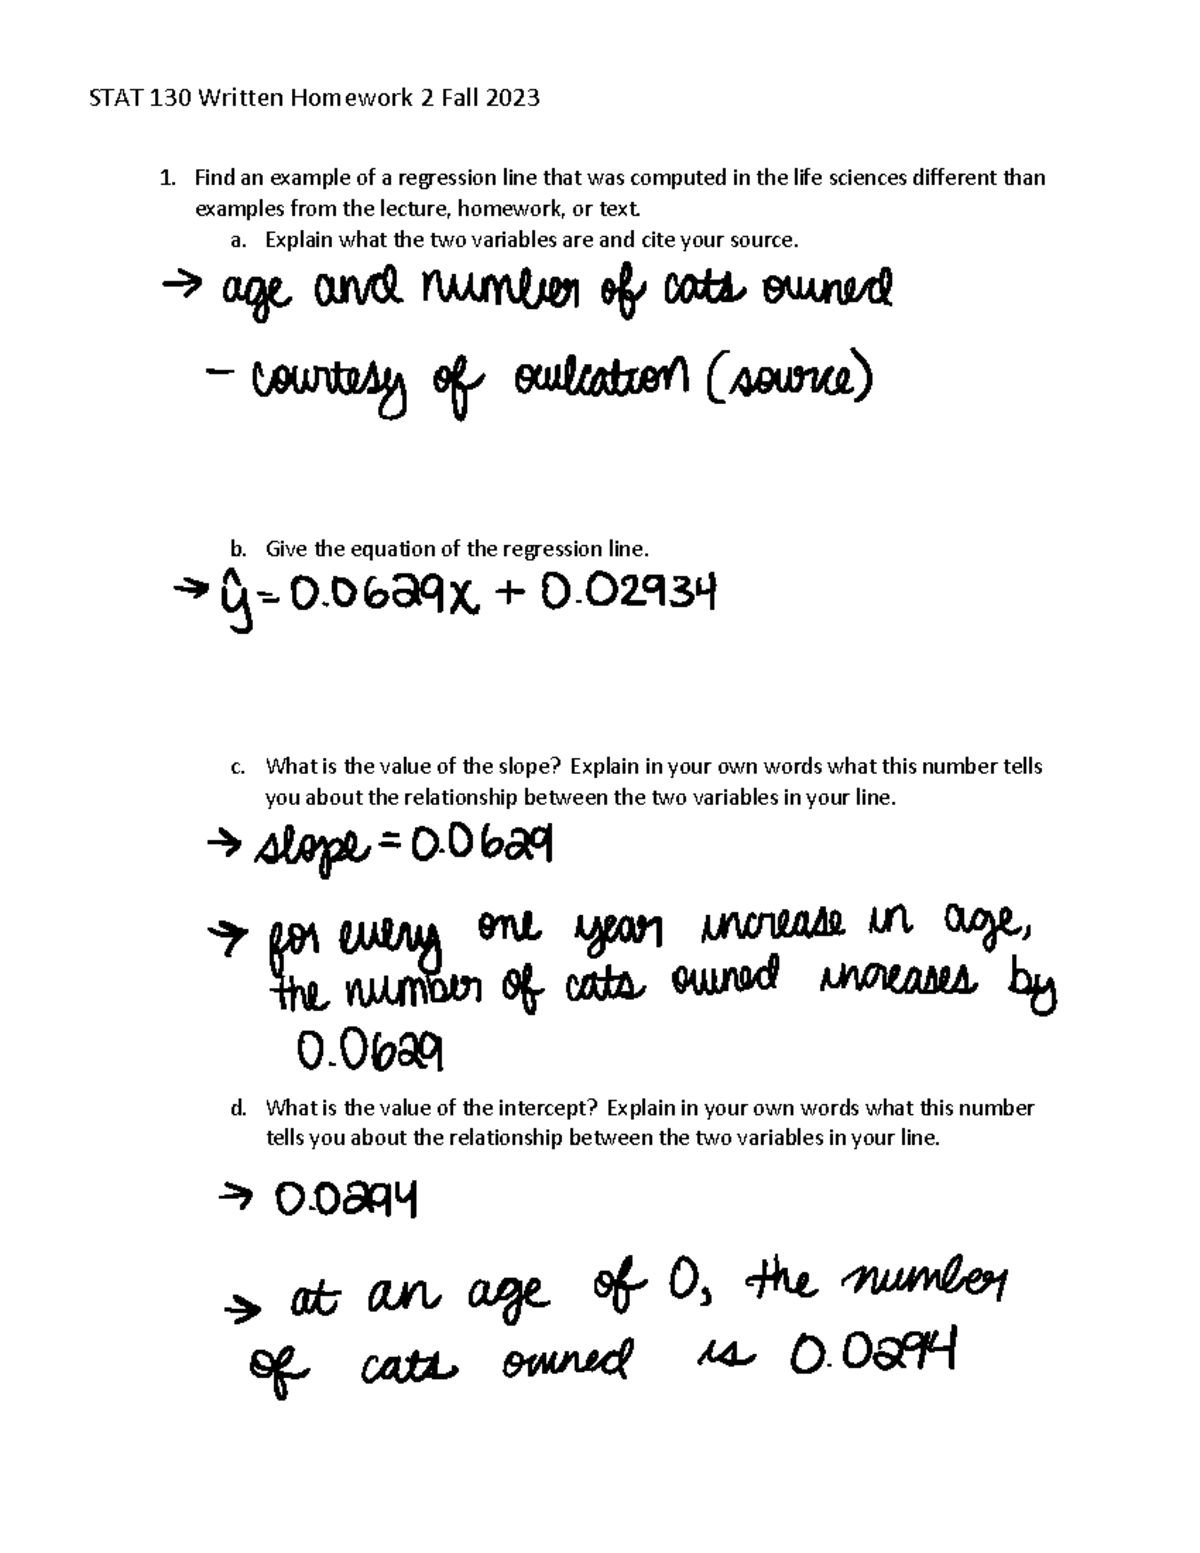 STAT 130 Written Homework 2 Fall 2023
1. Find an example of a regression line that was computed in the life sciences different than
examples from the lecture, homework, or text.
a. Explain what the two variables are and cite your source.
→ age and number of cats owned
– courtesy of owlcation (source)
b. Give the equation of the regression line.
→ ŷ = 0.0629x + 0.02934
c. What is the value of the slope? Explain in your own words what this number tells
you about the relationship between the two variables in your line.
→ slope = 0.0629
→ for every one year increase in age,
the number of cats owned increases by
0.0629
d. What is the value of the intercept? Explain in your own words what this number
tells you about the relationship between the two variables in your line.
→ 0.0294
→ at an age of 0, the number
of cats owned is 0.0294